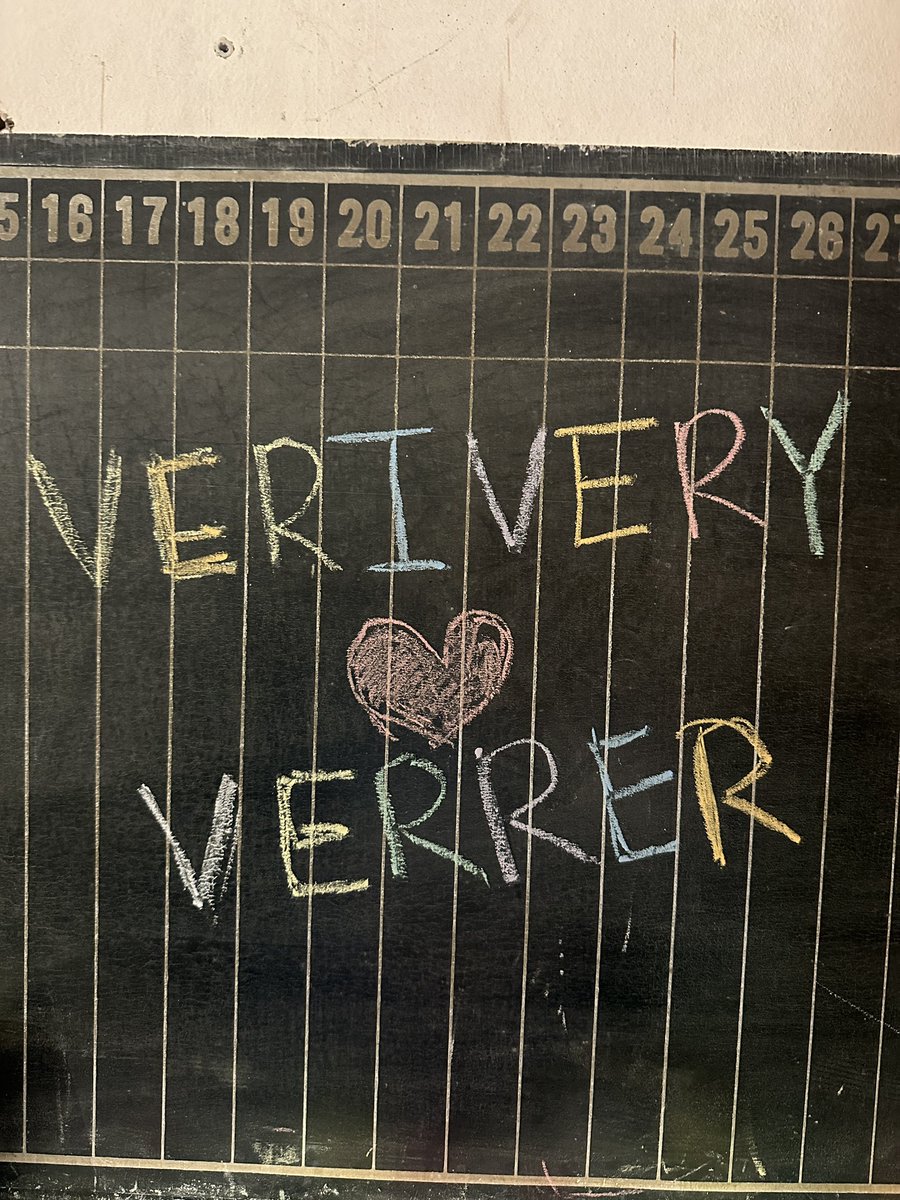 5 16 17 18 19 20 21 22 23 24 25 26 27
VERIVERY
VERRER